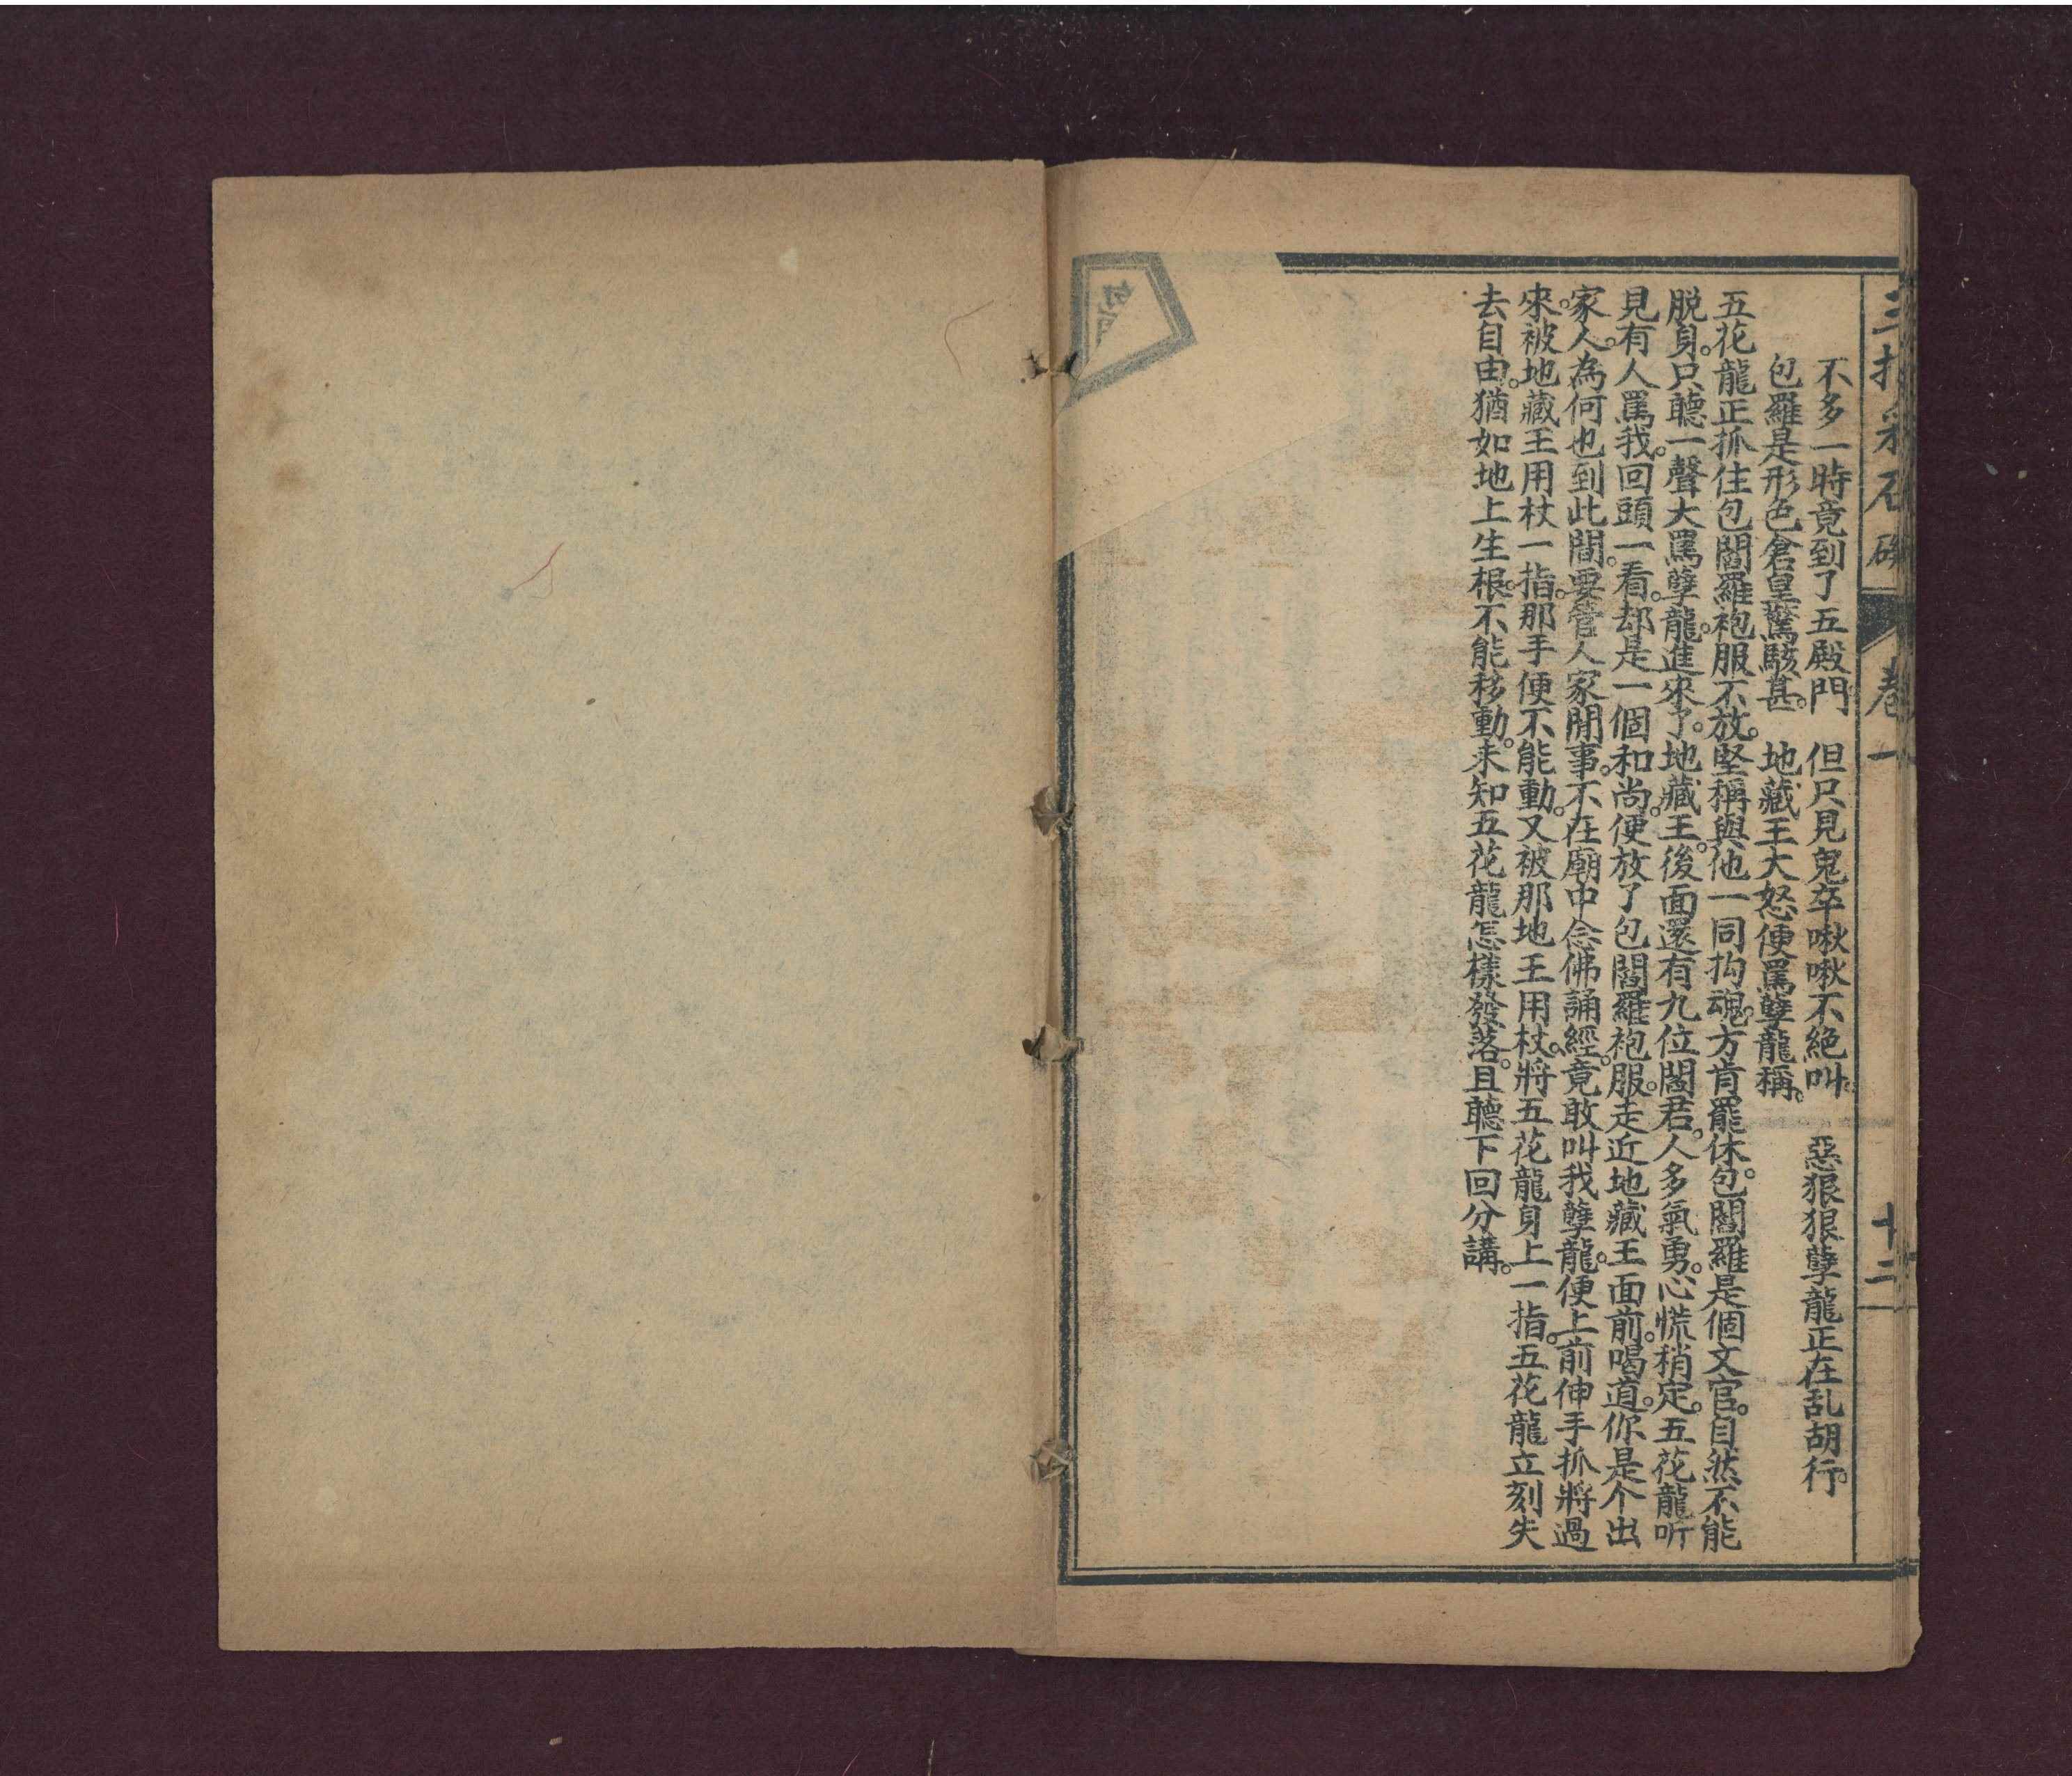 三打采石磯 卷一 十二
不多一時竟到了五殿門 但只見鬼卒啾啾不絕叫。 惡狠狠孽龍正在乱胡行。
包羅是形色倉皇驚駭甚。 地藏王大怒便罵孽龍稱。
五花龍正抓住包閻羅袍服不放。堅稱與他一同拘魂。方肯罷休。包閻羅是個文官。自然不能
脱身。只聽一聲大罵孽龍。進來了。地藏王。後面還有九位閻君。人多氣勇。心慌稍定。五花龍听
見有人罵我。回頭一看。却是一個和尚。便放了包閻羅袍服。走近地藏王面前。喝道。你是个出
家人。為何也到此間。要管人家閒事。不在廟中念佛誦經。竟敢叫我孽龍。便上前伸手抓將過
來。被地藏王用杖一指。那手便不能動。又被那地王用杖。將五花龍身上一指。五花龍立刻失
去自由。猶如地上生根。不能移動。未知五花龍怎樣發落。且聽下回分講。